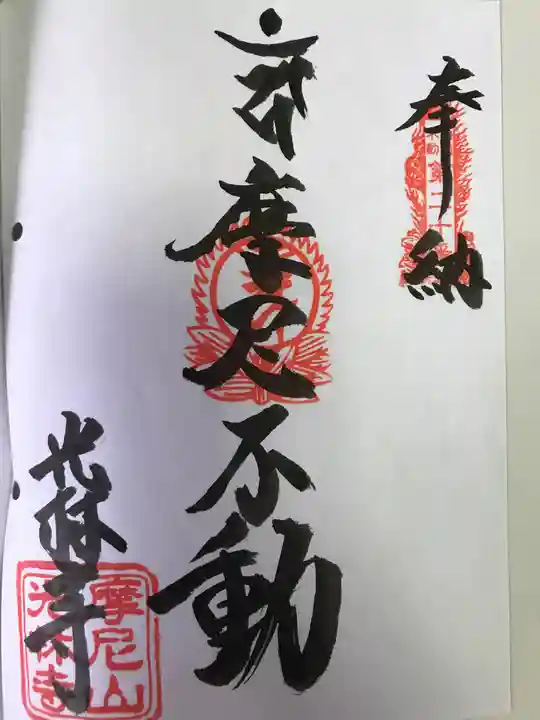 奉納
第二十
摩尼不動
光林寺
摩尼山
光林寺